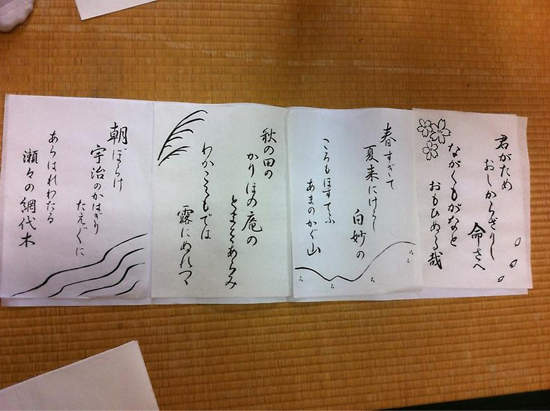 君がため
おしからざりし
命さへ
ながくもがなと
おもひぬる哉
春すぎて
夏来にけらし
白妙の
ころもほすてふ
あまのかぐ山
秋の田の
かりほの庵の
とまをあらみ
わがころもでは
露にぬれつゝ
朝ぼらけ
宇治のかはぎり
たえ〴〵に
あらはれわたる
瀬々の網代木